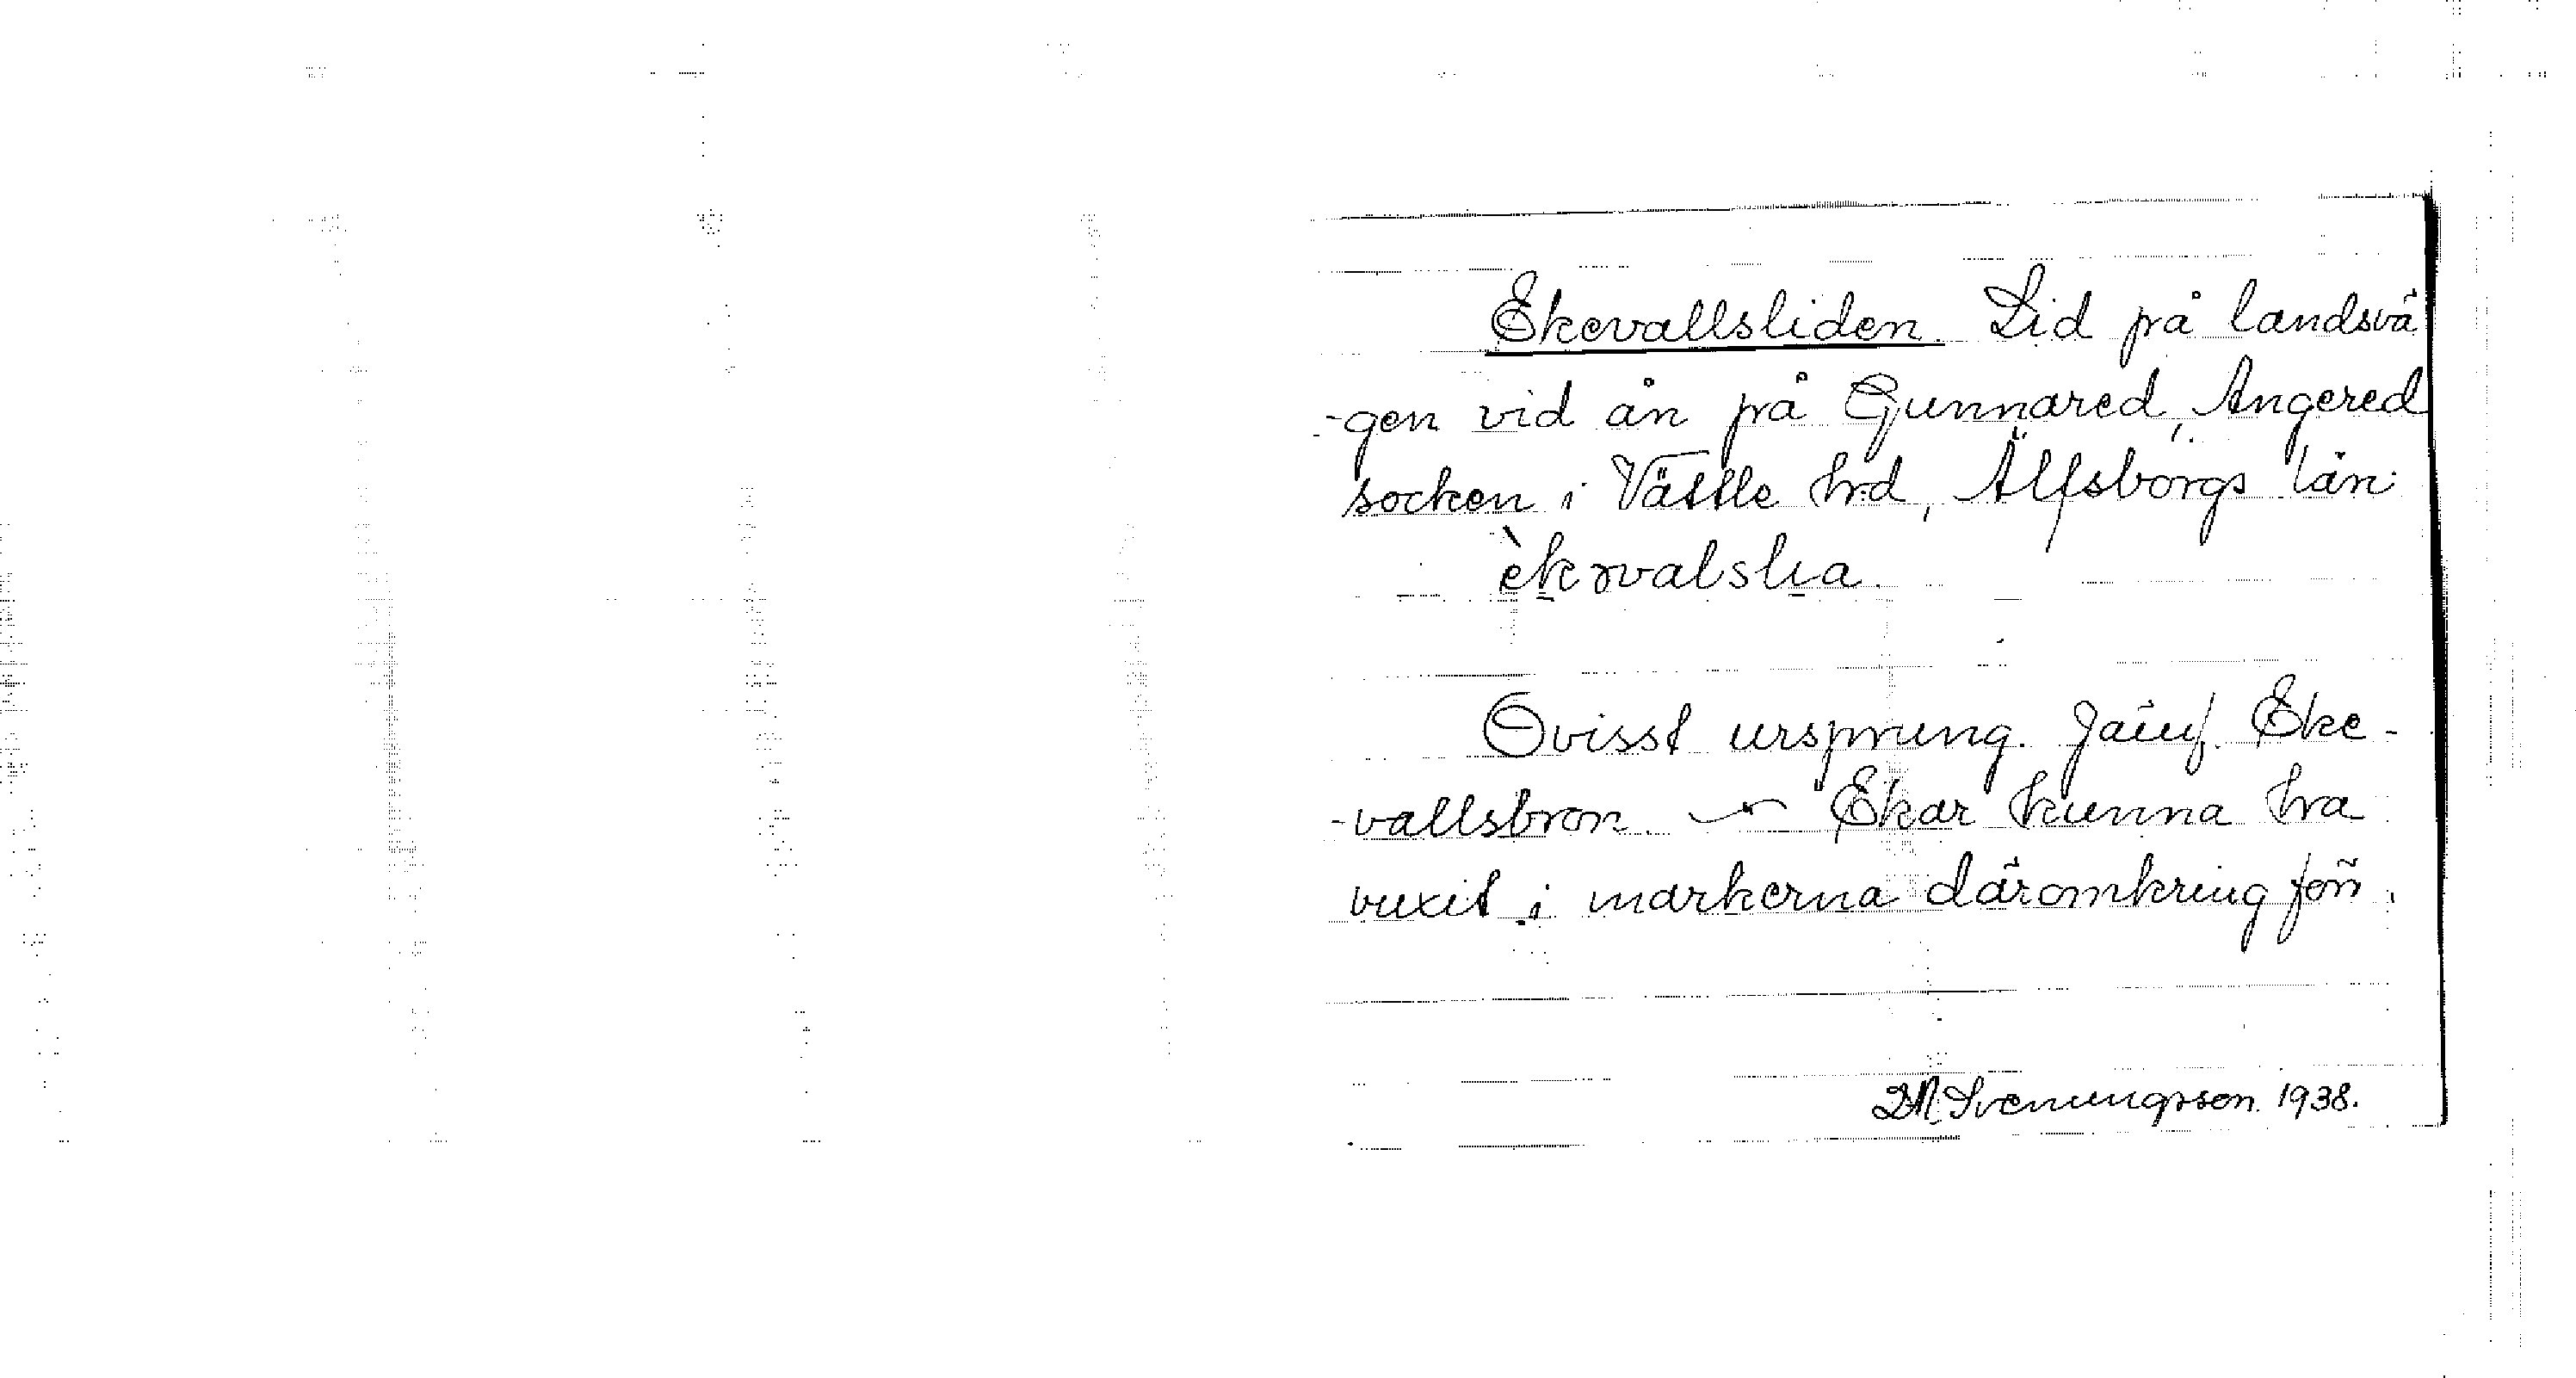 Ekevallsliden. Lid på landsvä
-gen vid ån på Gunnared, Angered
socken i Vättle hrd, Älfsborgs län
èkəvalslia.
Ovisst ursprung. Jämf. Eke-
-vallsbron. — Ekar kunna ha
vuxit i markerna däromkring förr.
Svenungsson. 1938.